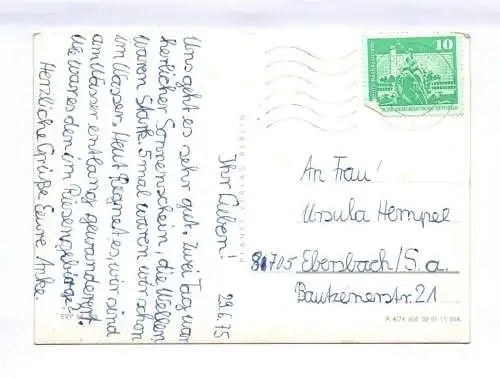 Ihr Lieben! 29.6.75
Uns geht es sehr gut. Zwei Tag war
herlicher Sonnenschein, die Wellen
waren Stark. 5mal waren wir schon
im Wasser. Heut Regnet es, wir sind
am Wasser entlang gewandert.
Wie war es den im Riesengebirge?
Herzliche Grüße Eeure Anke.
PLANET-VERLAG BERLIN
EVP
10
DEUTSCHE DEMOKRATISCHE REPUBLIK
An Frau!
Ursula Hempel
8705 Ebersbach/S.a.
Bautzenerstr. 21